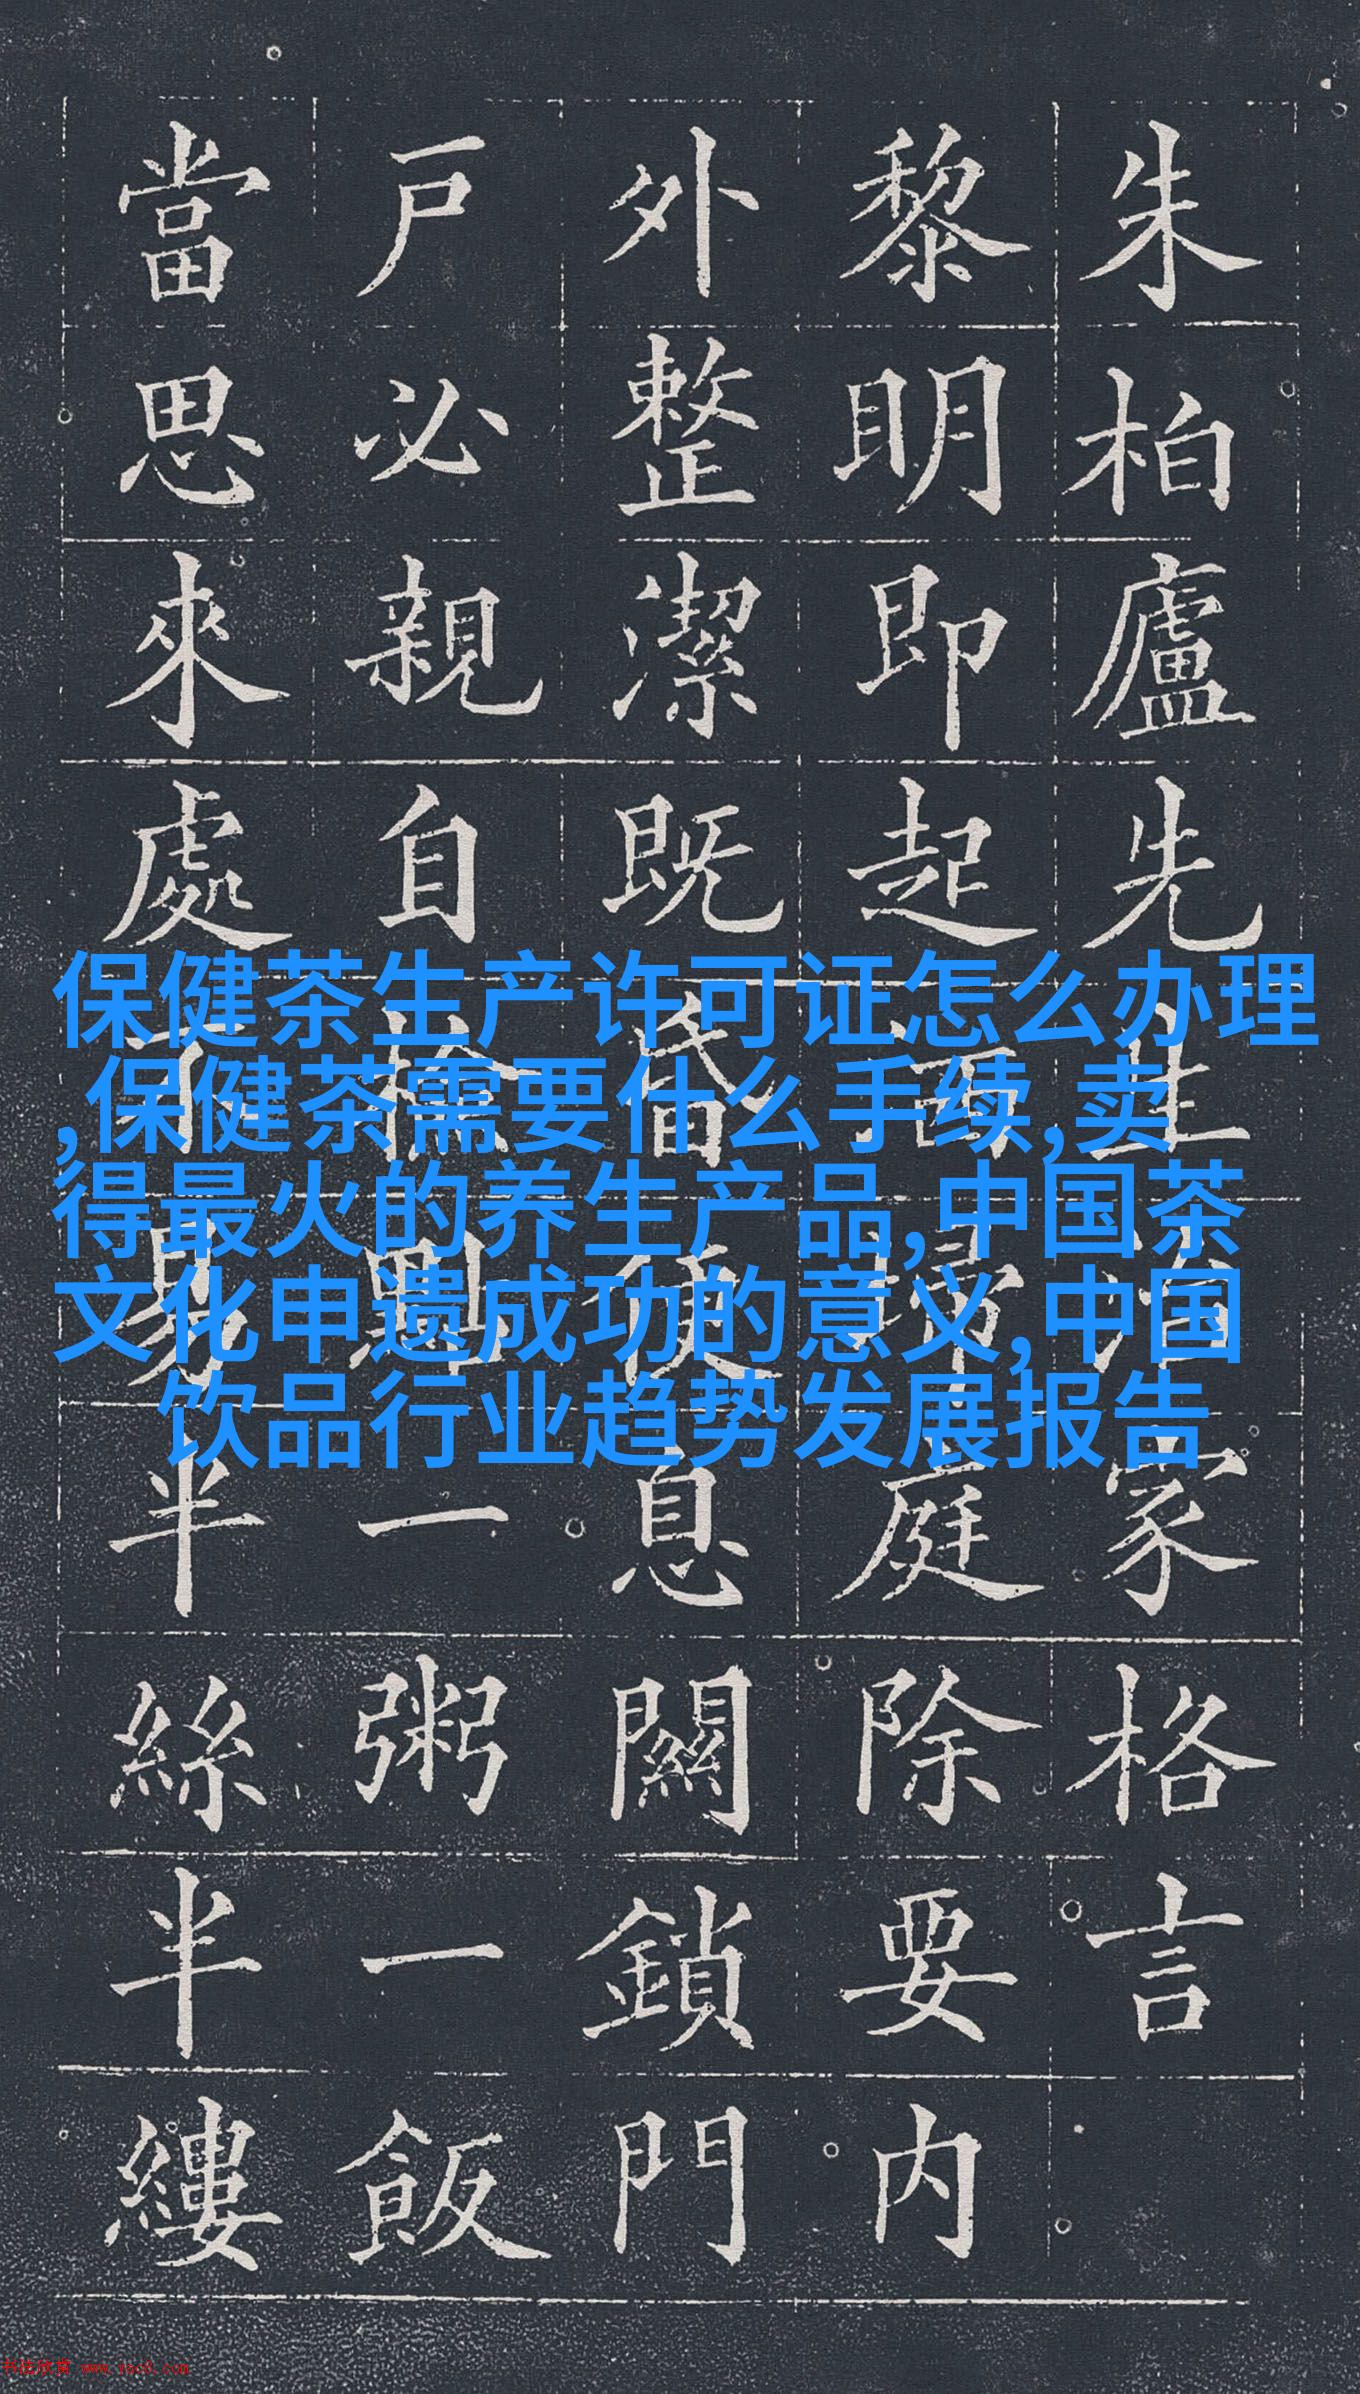 朱柏廬先生治家格言
黎眀即起洒掃庭除要内
外整潔既昏便息關鎖門
戶必親自檢點一粥一飯
當思來處不易半絲半縷
保健茶生产许可证怎么办理
,保健茶需要什么手续,卖
得最火的养生产品,中国茶
文化申遗成功的意义,中国
饮品行业趋势发展报告
书法欣赏 www.yac8.com